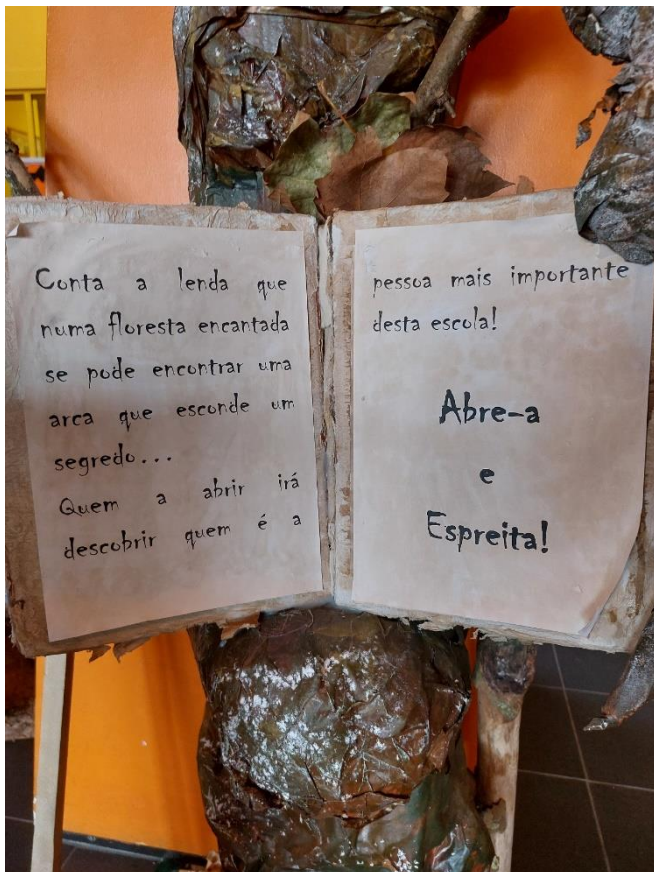 Conta a lenda que
numa floresta encantada
se pode encontrar uma
arca que esconde um
segredo...
Quem a abrir irá
descobrir quem é a
pessoa mais importante
desta escola!
Abre-a
e
Espreita!